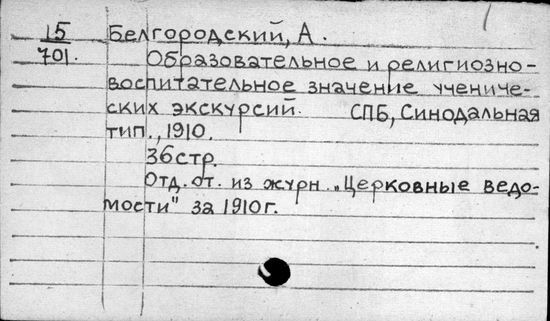 15 Белгородский, А.
701. Образовательное и религиозно-
воспитательное значение учениче-
ских экскурсий. СПБ, Синодальная
тип., 1910.
36 стр.
Отд. от. из журн. "Церковные ведо-
мости" за 1910 г.